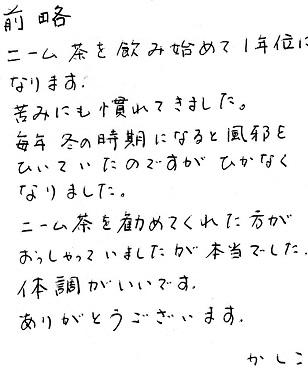 前略
ニーム茶を飲み始めて1年位に
なります.
苦みにも慣れてきました。
毎年 冬の時期になると風邪を
ひいていたのですが ひかなく
なりました。
ニーム茶を勧めてくれた方が
おっしゃっていましたが本当でした.
体調がいいです.
ありがとうございます.
かしこ